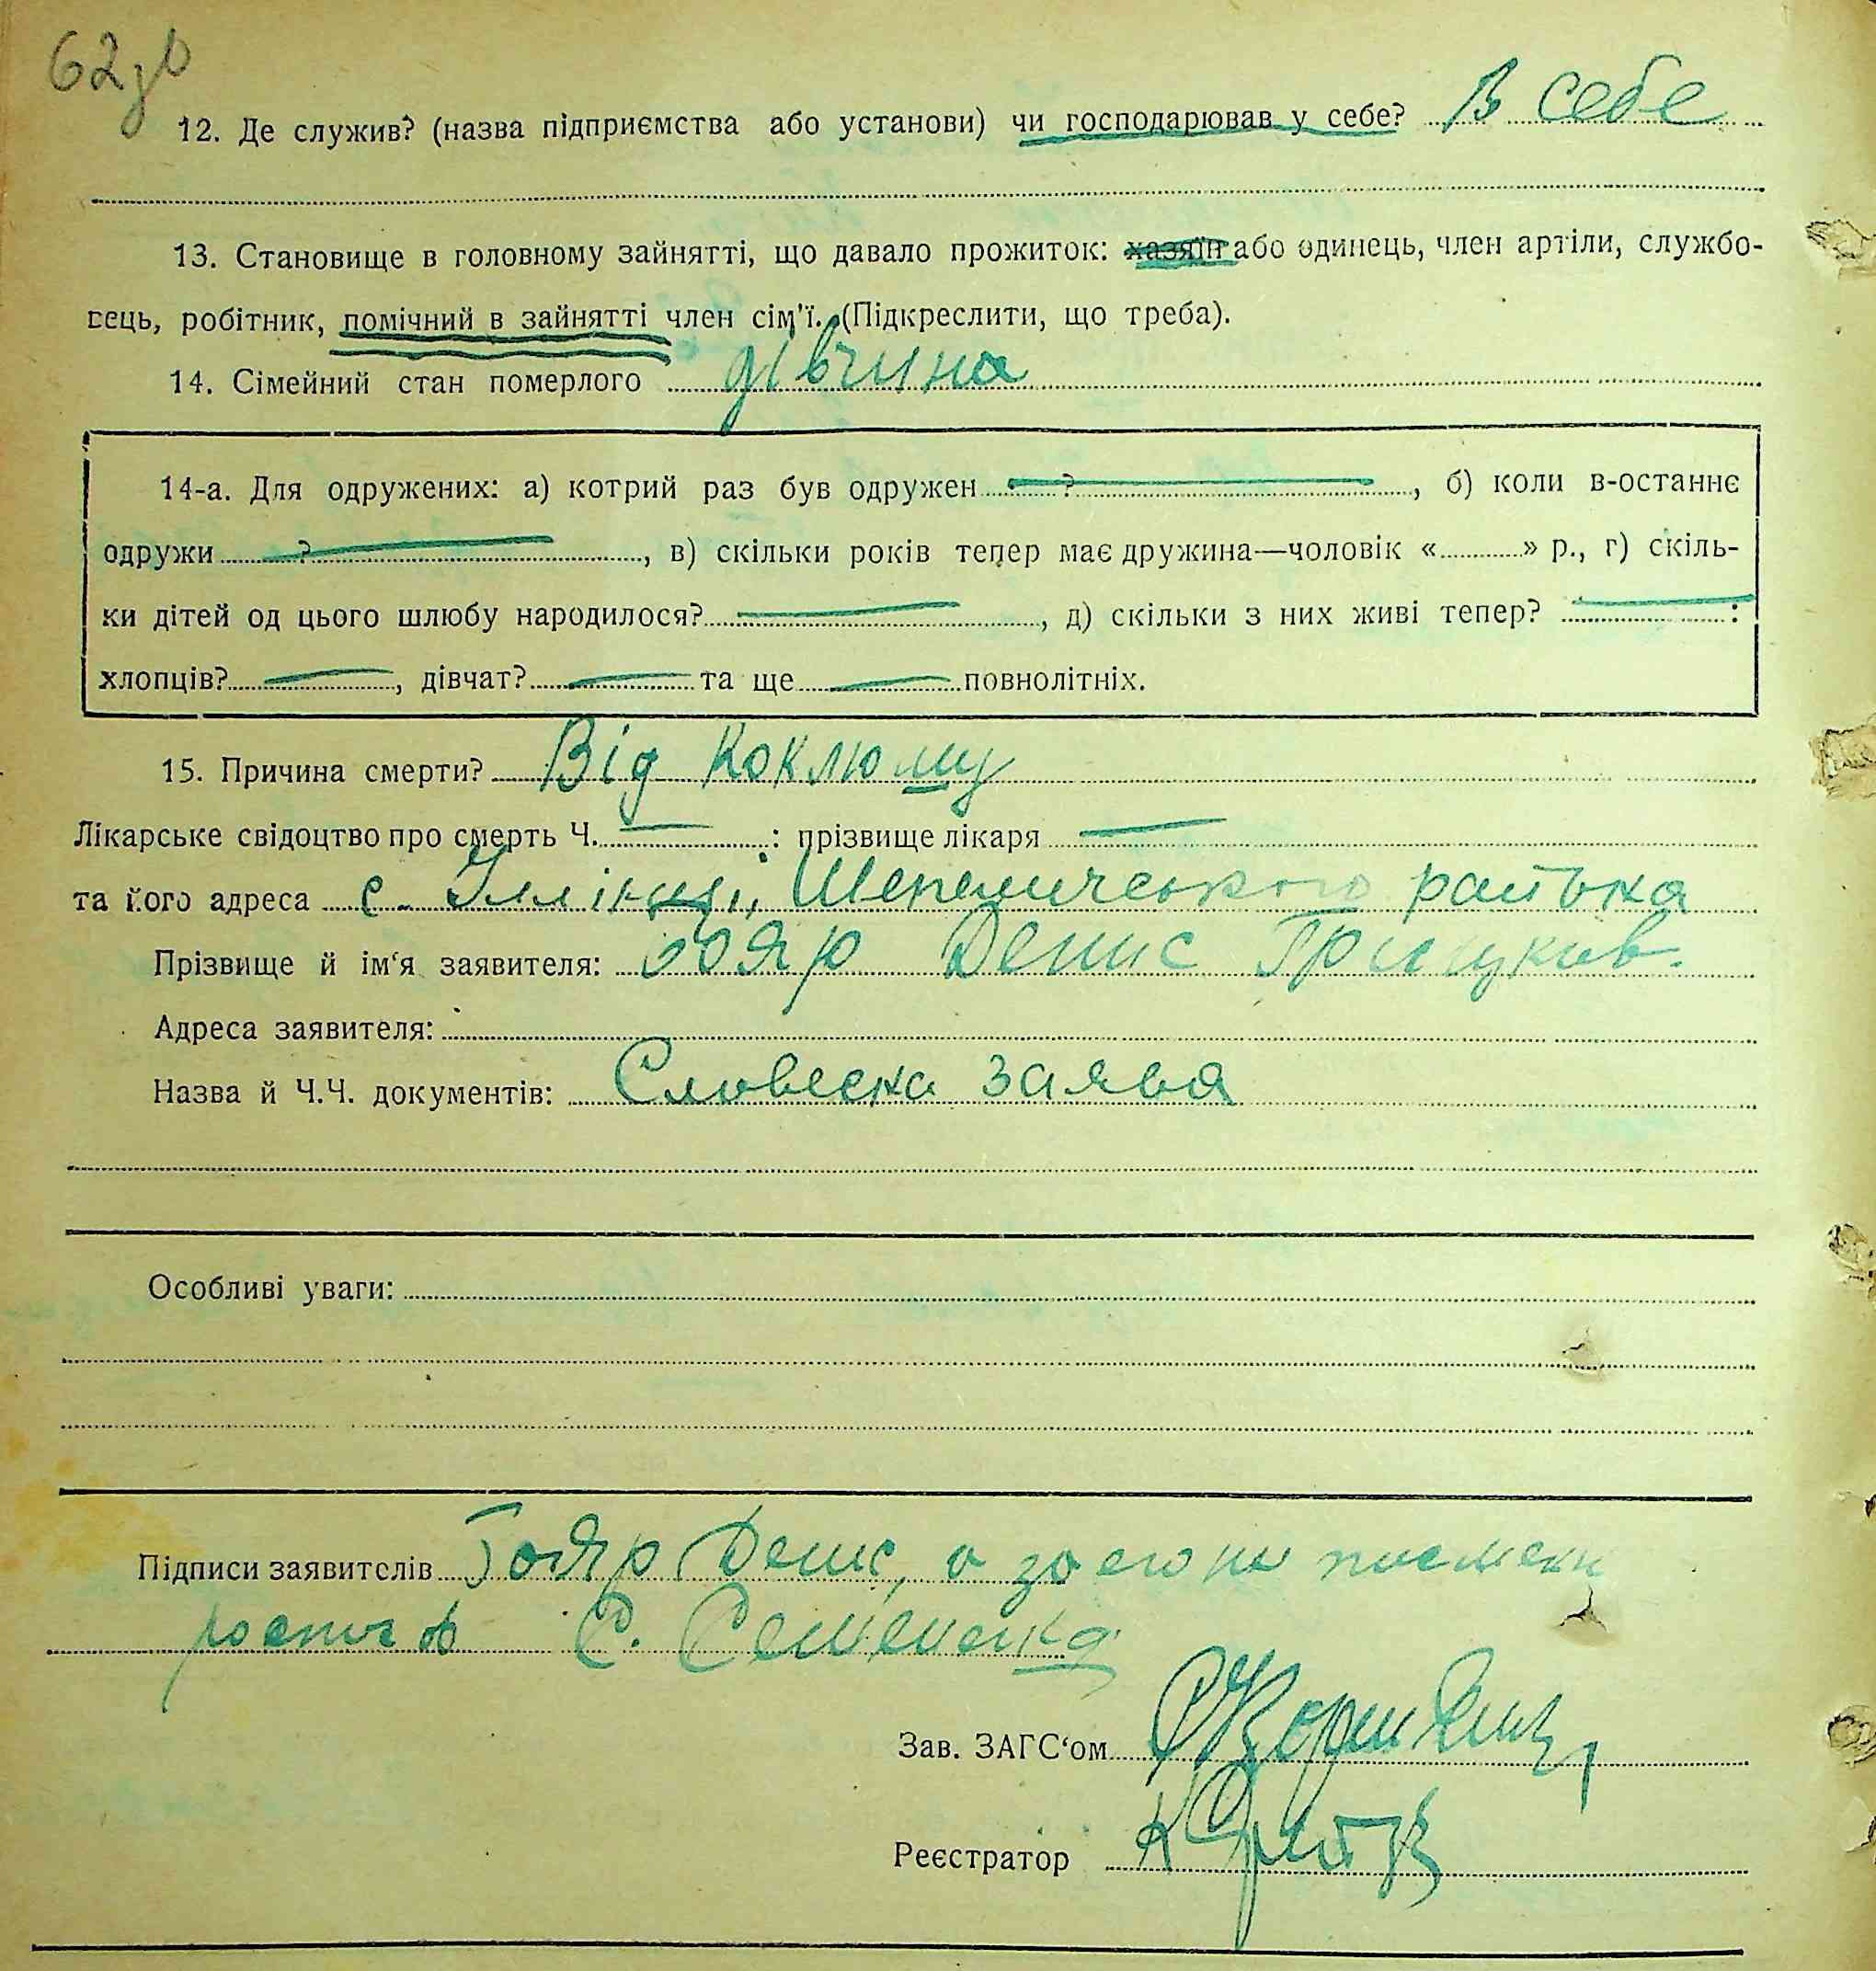 62зв
12. Де служив? (назва підприємства або установи) чи господарював у себе? В себе
13. Становище в головному зайнятті, що давало прожиток: хазяїн або одинець, член артіли, службо-
вець, робітник, помічний в зайнятті член сім'ї. (Підкреслити, що треба).
14. Сімейний стан померлого дівчина
14-а. Для одружених: а) котрий раз був одружен ?, б) коли в-останнє
одружи ?, в) скільки років тепер має дружина—чоловік « » р., г) скіль-
ки дітей од цього шлюбу народилося?, д) скільки з них живі тепер? :
хлопців?, дівчат? та ще повнолітніх.
15. Причина смерти? Від коклюшу
Лікарське свідоцтво про смерть Ч. : прізвище лікаря
та його адреса с. Іллінці, Шепелического района
Прізвище й ім'я заявителя: Бояр Денис
Адреса заявителя:
Назва й Ч.Ч. документів: Словесна заява
Особливі уваги:
Підписи заявителів Бояр Денис, а за его не
С. Семененко
Зав. ЗАГС'ом
Реєстратор